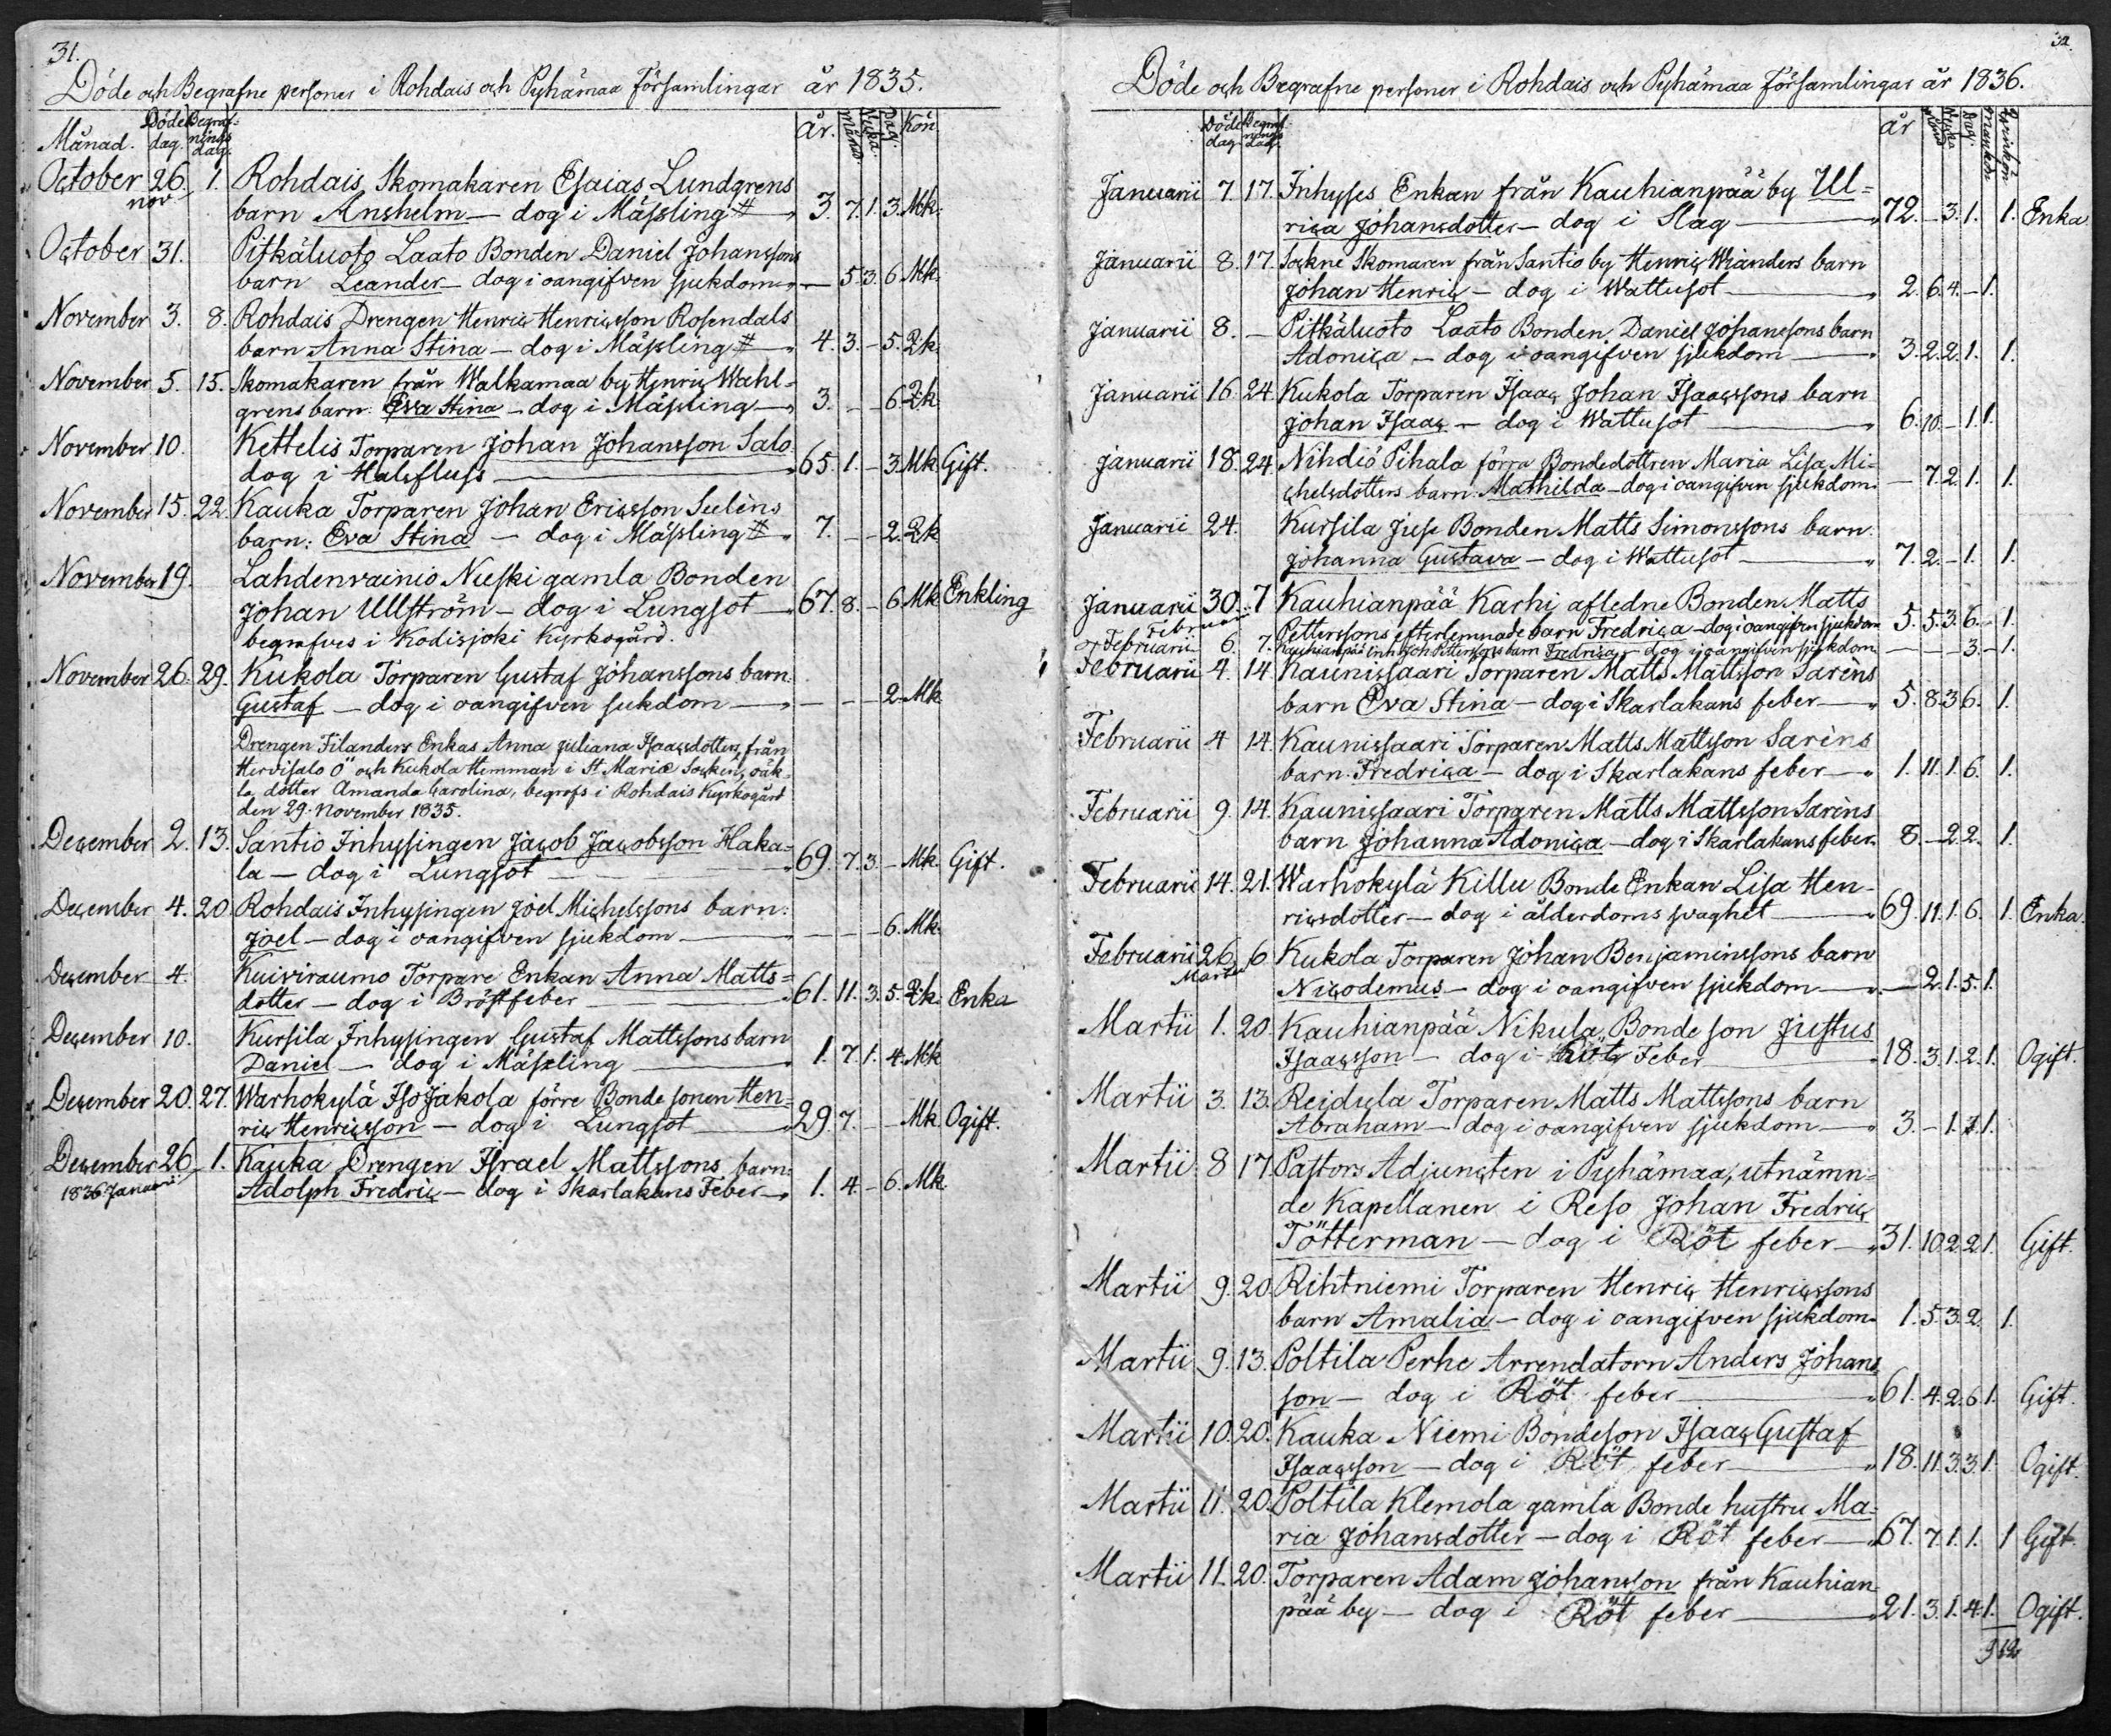 31.
Döde och Begrafne personer i Rohdais och Pyhämaa Församlingar år 1835.
Månad. Döde dag. Begrafnings dag. år. Månad. Vecka. Dag. Kön
October 26. 1. Rohdais Skomakaren Esaias Lundgrens
nov barn Anshelm — dog i Mässling # 3. 7. 1. 3. Mk.
October 31. Pitkäluoto Laato Bonden Daniel Johanssons
barn Leander — dog i oangifven sjukdom — 5. 3. 6 Mk.
November 3. 8. Rohdais Drengen Henric Henricsson Rosendals
barn Anna Stina — dog i Mässling # 4. 3. — 5. Qk.
November 5. 15. Skomakaren från Walkamaa by Henric Wahl-
grens barn: Eva Stina — dog i Mässling — 3. — — 6. Qk
November 10. Kettelis Torparen Johan Johansson Salo
dog i Halsfluss — 65. 1. — 3. Mk Gift.
November 15. 22. Kauka Torparen Johan Ericsson Seléns
barn: Eva Stina — dog i Mässling # 7. — — 2. Qk
November 19. Lahdenvainio Nieski gamla Bonden
Johan Ullström — dog i Lungsot — 67. 8. — 6 Mk Enkling
begrafves i Kodisjoki Kyrkogård.
November 26. 29. Kukola Torparen Gustaf Johanssons barn
Gustaf — dog i oangifven sukdom — — — — 2. Mk.
Drengen Filanders Enkas Anna Juliana Isaacsdotters, från
Hervisalo Ö och Kukola Hemman i St Mariæ Socken, oäk-
ta dotter Amanda Carolina, begrofs i Rohdais Kyrkogård
den 29. November 1835.
December 2. 13. Santio Inhysingen Jacob Jacobsson Haka-
la — dog i Lungsot — 69. 7. 3. — Mk Gift.
December 4. 20 Rohdais Inhysingen Joel Michelssons barn:
Joel — dog i oangifven sjukdom — — — — 6. Mk.
December 4. Kuiviraumo Torpare Enkan Anna Matts-
dotter — dog i Bröstfeber — 61. 11. 3. 5. Qk. Enka
December 10. Kursila Inhysingen Gustaf Mattssons barn
Daniel — dog i Mässling — 1. 7. 1. 4. Mk
December 20. 27. Warhokylä Iso Jakola förre Bonde sonen Hen-
ric Henricsson — dog i Lungsot — 29. 7. — — Mk Ogift.
December 26. 1. Kauka Drengen Israel Mattssons barn:
1836 Januari: Adolph Fredric — dog i Skarlakans Feber — 1. 4. — 6. Mk
32.
Döde och Begrafne personer i Rohdais och Pyhämaa Församlingar år 1836.
Döde dag Begrafnings dag. år Månad Vecka Dag. Mankön Qvinkön
Januarii 7. 17. Inhyses Enkan från Kauhianpää by Ul-
rica Johansdotter — dog i Slag — 72. — 3. 1. 1. Enka.
Januarii 8. 17. Sockne Skomaren från Santio by Henric Wianders barn
Johan Henric — dog i Wattusot — 2. 6. 4. — 1.
Januarii 8. — Pitkäluoto Laato Bonden Daniel Johanssons barn
Adonica — dog i oangifven sjukdom — 3. 2. 2. 1. 1.
Januarii 16. 24. Kukola Torparen Isaac Johan Isaacssons barn
Johan Isaac — dog i Wattusot — 6. 10. — 1. 1.
Januarii 18. 24. Nihdiö Pihala förra Bondedottren Maria Lisa Mi-
chelsdotters barn: Mathilda — dog i oangifven sjukdom. — 7. 2. 1. 1.
Januarii 24. Kursila Juse Bonden Matts Simonssons barn:
Johanna Gustava — dog i Wattusot — 7. 2. — 1. 1.
Januarii 30. 7 Kauhianpää Karhi afledne Bonden Matts
Februari Petterssons efterlemnade barn Fredrica — dog i oangifven sjukdom 5. 5. 3. 6. — 1.
Februarii 6. 7. Kauhianpää Inh. Joh. Petterssons barn Fredrica — dog i oangifven sjukdom — — — 3. — 1.
Februarii 4. 14 Kaunissaari Torparen Matts Mattsson Saréns
barn Eva Stina — dog i Skarlakans feber — 5. 8. 3 6. 1.
Februarii 4 14. Kaunissaari Torparen Matts Mattsson Saréns
barn: Fredrica — dog i Skarlakans feber — 1. 11. 1. 6. 1.
Februarii 9. 14. Kaunissaari Torparen Matts Mattsson Saréns
barn Johanna Adonica — dog i Skarlakans feber. 8. — 2. 2. 1.
Februarii 14. 21. Warhokylä Killu Bonde Enkan Lisa Hen-
ricsdotter — dog i ålderdoms svaghet — 69. 11. 1. 6. 1. Enka.
Februarii 26. 6 Kukola Torparen Johan Benjaminssons barn
Martii Nicodemus — dog i oangifven sjukdom — — 2. 1. 5. 1.
Martii 1. 20. Kauhianpää Nikula Bonde son Justus
Isaacsson — dog i Röt Feber — 18. 3. 1. 2. 1. Ogift.
Martii 3. 13. Reidula Torparen Matts Mattssons barn
Abraham — dog i oangifven sjukdom — 3. — 1. 1. 1.
Martii 8 17. Pastors Adjuncten i Pyhämaa, utnämn-
de Kapellanen i Reso Johan Fredric
Tötterman — dog i Röt feber — 31. 10. 2. 2. 1. Gift.
Martii 9. 20. Rihtniemi Torparen Henric Henricssons
barn Amalia — dog i oangifven sjukdom. 1. 5. 3. 2. 1.
Martii 9. 13. Poltila Perhe Arrendatorn Anders Johans
son — dog i Röt feber — 61. 4. 2. 6. 1. Gift.
Martii 10. 20. Kauka Niemi Bondeson Isaac Gustaf
Isaacsson — dog i Röt feber — 18. 11. 3. 3. 1. Ogift.
Martii 11. 20. Poltila Klemola gamla Bonde hustru Ma-
ria Johansdotter — dog i Röt feber — 67. 7. 1. 1. 1 Gift.
Martii 11. 20. Torparen Adam Johansson från Kauhian-
pää by — dog i Röt feber — 21. 3. 1. 4. 1. Ogift.
9 12